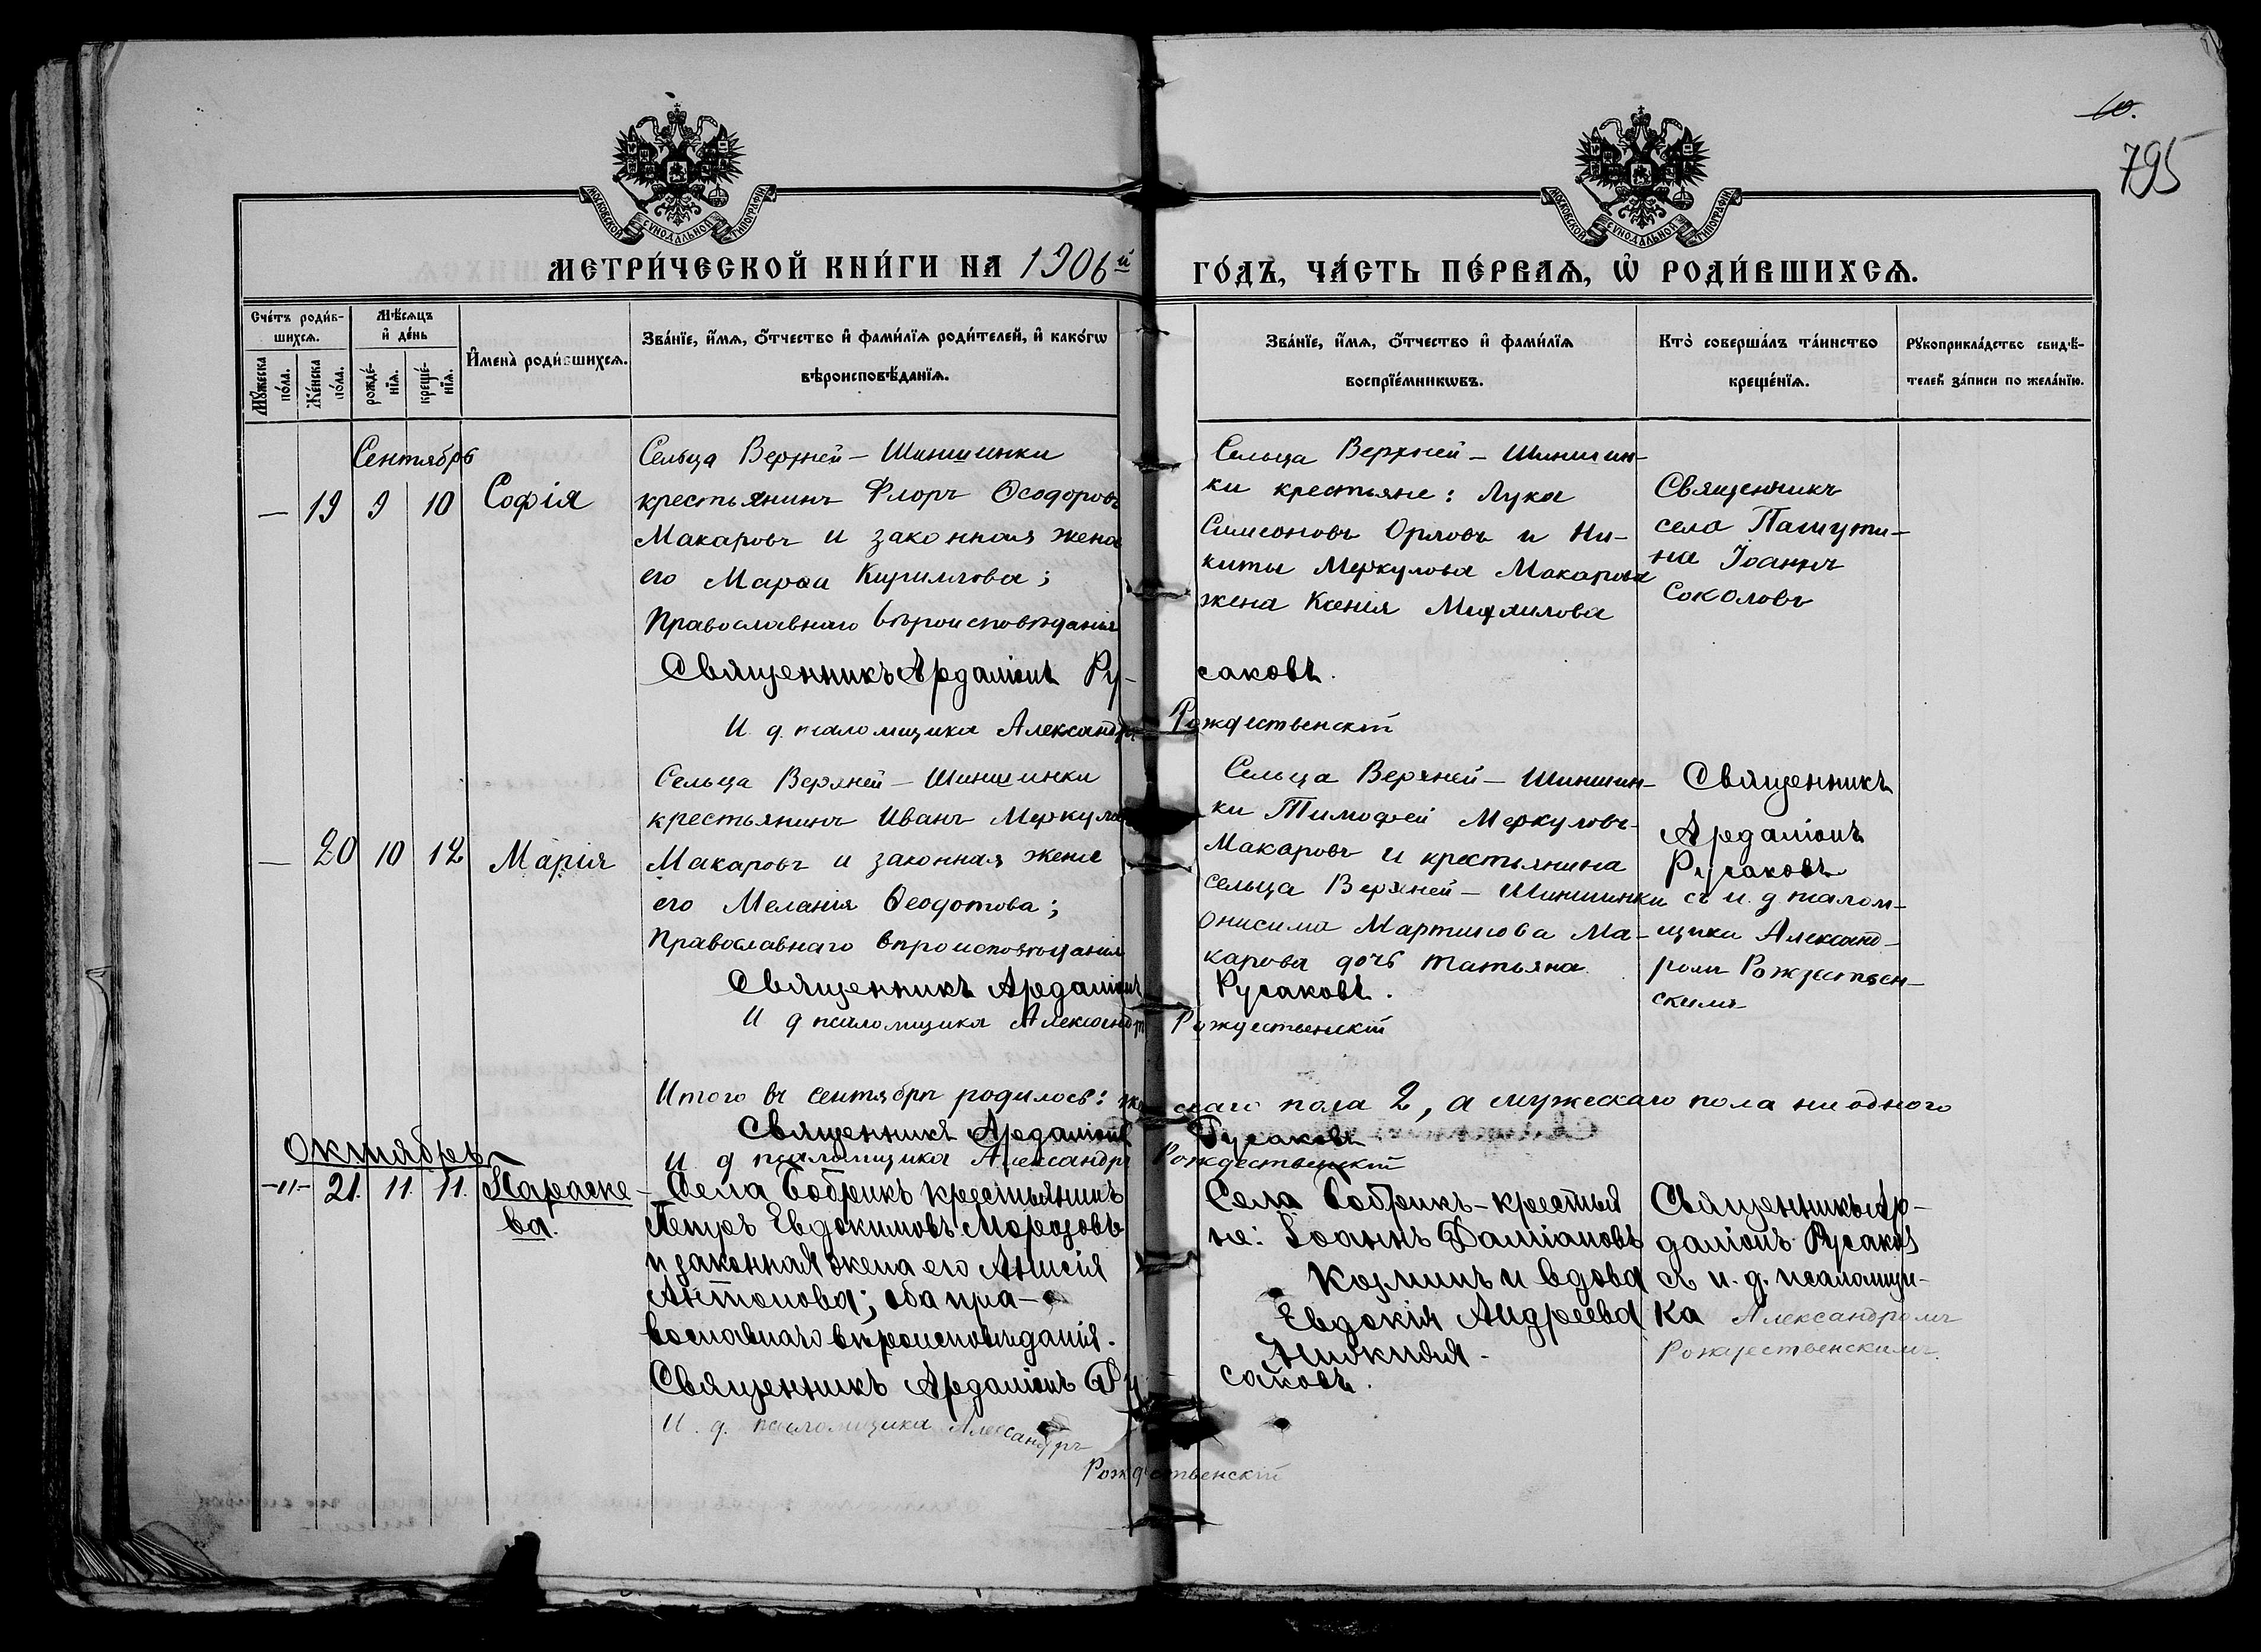 10.
795
МОСКОВСКОЙ СѴНОДАЛЬНОЙ ТИПОГРАФІИ
МОСКОВСКОЙ СѴНОДАЛЬНОЙ ТИПОГРАФІИ
МЕТРИ́ЧЕСКОЙ КНИ́ГИ НА 1906й
ГО́ДЪ, ЧА́СТЬ ПЕ́РВАѦ, Ѡ҆ РОДИ́ВШИХСѦ.
Сче́тъ роди́в-
шихсѧ.
Мꙋ́жеска
по́ла.
Же́нска
по́ла.
Мѣ́сѧцъ
и҆ де́нь
рожде́-
нїѧ.
креще́-
нїѧ.
И҆мена̀ роди́вшихсѧ.
Зва́нїе, и҆́мѧ, ѻ҆́тчество и҆ фами́лїѧ роди́телей, и҆ како́гѡ
вѣроисповѣ́данїѧ.
Зва́нїе, и҆́мѧ, ѻ҆́тчество и҆ фами́лїѧ
воспрїе́мникѡвъ.
Кто̀ соверша́лъ та́инство
креще́нїѧ.
Рꙋкоприкла́дство свидѣ́-
телей за́писи по жела́нїю.
Сентябрь
— 19 9 10 Софія
Сельца Верхней – Шиншинки
крестьянинъ Флоръ Ѳеодоровъ
Макаровъ и законная жена
его Марѳа Кириллова;
Православнаго вѣроисповѣданія
Сельца Верхней – Шиншин-
ки крестьяне: Лука
Симеоновъ Орловъ и Ни-
киты Меркулова Макарова
жена Ксенія Михаилова
Священникъ
села Пашути-
на Іоаннъ
Соколовъ
Священникъ Ардаліонъ Ру-
саковъ.
И. д. псаломщика Александръ Рождественскій
— 20 10 12 Марія
Сельца Верхней – Шиншинки
крестьянинъ Иванъ Меркуловъ
Макаровъ и законная жена
его Меланія Ѳеодотова;
Православнаго вѣроисповѣданія
Сельца Верхней – Шиншин-
ки Тимофей Меркуловъ
Макаровъ и крестьянина
сельца Верхней – Шиншинки
Онисима Мартинова Ма-
карова дочь Татьяна.
Священникъ
Ардаліонъ
Русаковъ
съ и. д. псалом-
щика Александ-
ромъ Рождествен-
скимъ
Священникъ Ардаліонъ Русаковъ.
И д псаломщика Александръ Рождественскій
Итого въ сентябрѣ родилось: женскаго пола 2, а мужескаго пола ни одного
Священникъ Ардаліонъ Русаковъ
И д псаломщика Александръ Рождественскій
Октябрь
-„- 21. 11. 11. Параске-
ва.
Села Бобрикъ крестьянинъ
Петръ Евдокимовъ Морозовъ
и законная жена его Анисія
Антонова; оба пра-
вославнаго вѣроисповѣданія.
Села Бобрикъ – крестья
не: Іоаннъ Даміановъ
Козминъ и вдова
Евдокія Андреева
Священникъ Ар-
даліонъ Русаковъ
съ и. д. псаломщи-
ка Александромъ
Рождественскимъ.
Священникъ Ардаліонъ Ру
саковъ.
И. д. псаломщика Александръ
Рождественскій